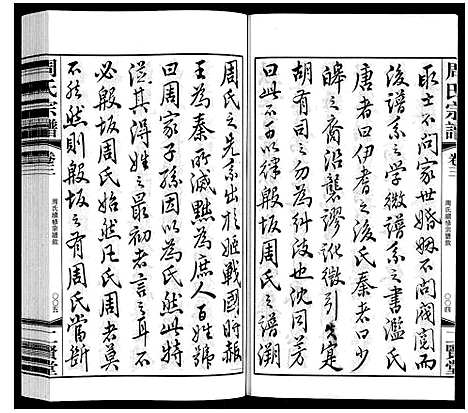 周氏宗譜
卷三
周氏續修宗譜敘
〇〇四
二賢堂
取士不問家世婚姻不問閥閱而
後譜系之學微譜系之書濫氏
唐者曰伊耆之後氏秦者曰皋
皞之裔沿襲謬訛徵引失寔
胡有司之勿為糾波也沈同矣
曰此二者之為此也譜系之譜溯
周氏之先系出於姬戰國時赧
王為秦所滅黜為庶人百姓號
曰周家子孫因以為氏然此特
溯其得姓之最初者言之耳不
必般坂周氏始然凡氏周者莫
不然然則般坂之有周氏當斷
周氏宗譜
卷三
周氏續修宗譜敘
〇〇五
二賢堂